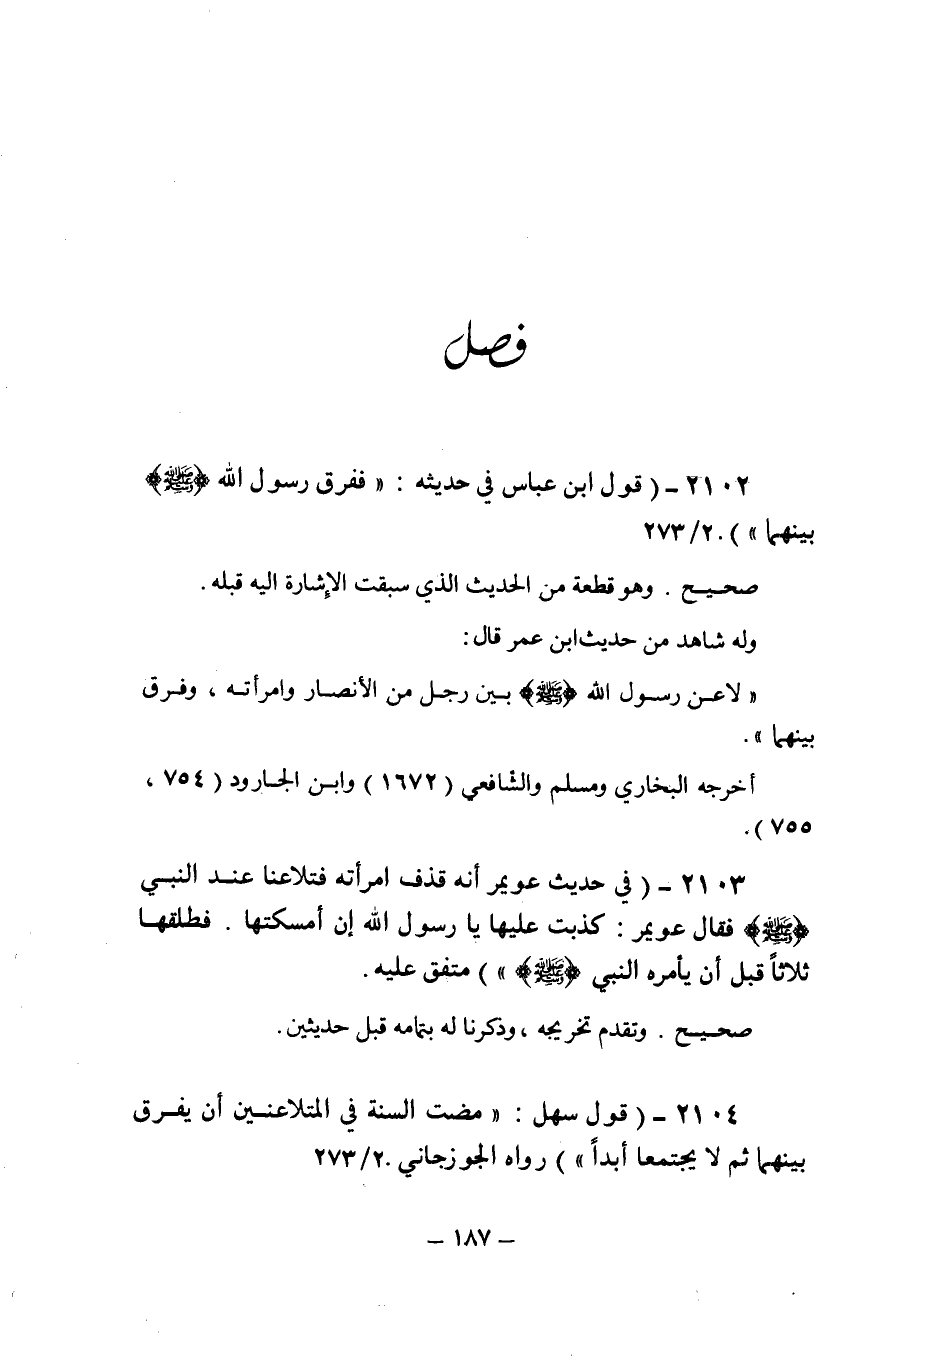 فصل
٢١٠٢ - ( قول ابن عباس في حديثه : « ففرق رسول الله ﴿ﷺ﴾
بينهما » ) . ٢٧٣/٢
صحيح . وهو قطعة من الحديث الذي سبقت الإشارة اليه قبله .
وله شاهد من حديث ابن عمر قال :
« لاعن رسول الله ﴿ﷺ﴾ بين رجل من الأنصار وامرأته ، وفرق
بينهما » .
أخرجه البخاري ومسلم والشافعي ( ١٦٧٢ ) وابن الجارود ( ٧٥٤ ،
٧٥٥ ) .
٢١٠٣ - ( في حديث عويمر أنه قذف امرأته فتلاعنا عند النبي
﴿ﷺ﴾ فقال عويمر : كذبت عليها يا رسول الله إن أمسكتها . فطلقها
ثلاثاً قبل أن يأمره النبي ﴿ﷺ﴾ » ) متفق عليه .
صحيح . وتقدم تخريجه ، وذكرنا له بتمامه قبل حديثين .
٢١٠٤ - ( قول سهل : « مضت السنة في المتلاعنين أن يفرق
بينهما ثم لا يجتمعا أبداً » ) رواه الجوزجاني . ٢٧٣/٢
– ١٨٧ –